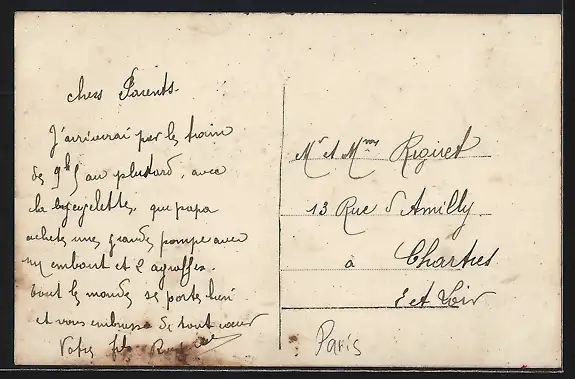 chers Parents.
J'arriverai par le train
de 9h au plustard, avec
la bycyclette, que papa
achete une grande pompe avec
un embout et l'agraffes.
tout le monde se porte bien
et vous embrasse de tout cœur
Votre fils
Mr et Mme Riguet
13 Rue d'Amilly
à Chartres
E et Loir
Paris